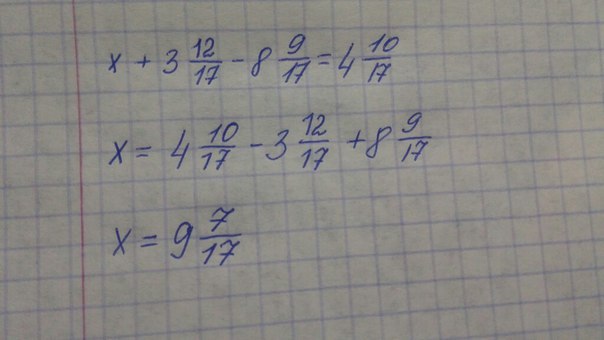 x + 3 12/17 - 8 9/17 = 4 10/17
x = 4 10/17 - 3 12/17 + 8 9/17
x = 9 7/17